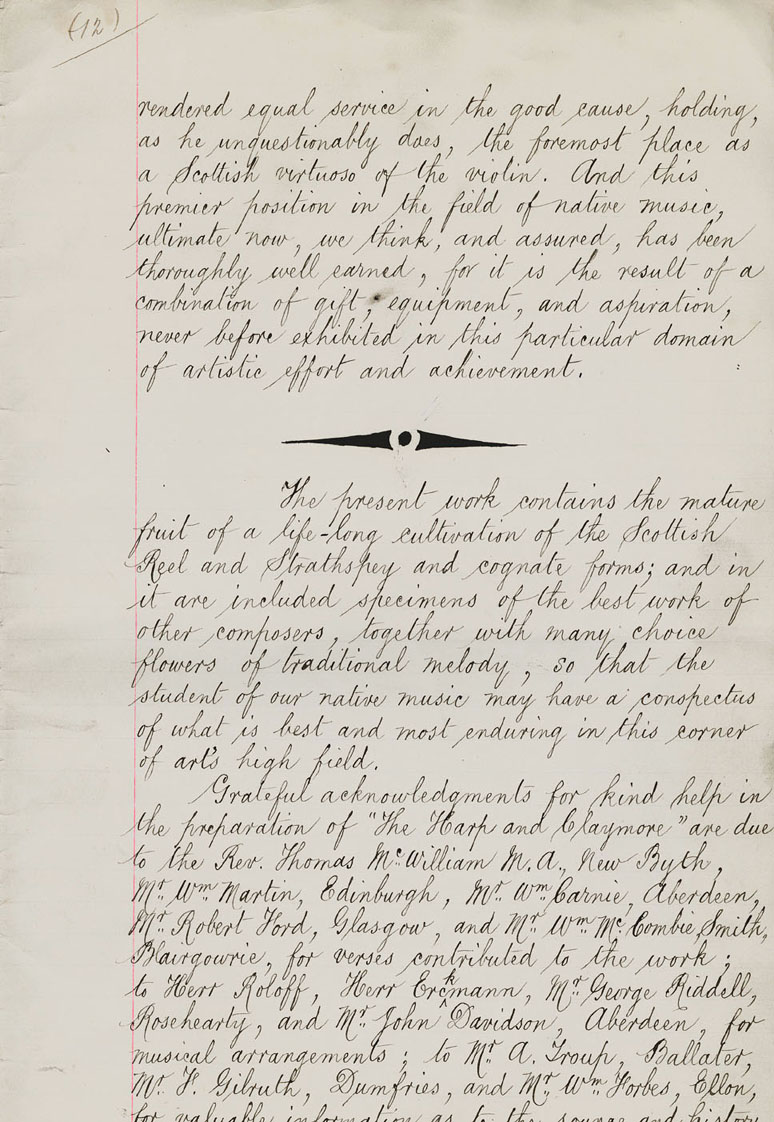 (12)
rendered equal service in the good cause, holding,
as he unquestionably does, the foremost place as
a Scottish virtuoso of the violin. And this
premier position in the field of native music,
ultimate now, we think, and assured, has been
thoroughly well earned, for it is the result of a
combination of gift, equipment, and aspiration,
never before exhibited in this particular domain
of artistic effort and achievement.
The present work contains the mature
fruit of a life-long cultivation of the Scottish
Reel and Strathspey and cognate forms; and in
it are included specimens of the best work of
other composers, together with many choice
flowers of traditional melody, so that the
student of our native music may have a conspectus
of what is best and most enduring in this corner
of art's high field.
Grateful acknowledgments for kind help in
the preparation of "The Harp and Claymore" are due
to the Rev. Thomas Mc.William M.A., New Byth,
Mr. Wm Martin, Edinburgh, Mr. Wm Carnie, Aberdeen,
Mr. Robert Ford, Glasgow, and Mr. Wm Mc.Combie Smith,
Blairgowrie, for verses contributed to the work;
to Herr Roloff, Herr Erckmann, Mr. George Riddell,
Rosehearty, and Mr. John Davidson, Aberdeen, for
musical arrangements; to Mr. A. Troup, Ballater,
Mr. F. Gilruth, Dumfries, and Mr. Wm Forbes, Ellon,
for valuable information as to the source and history